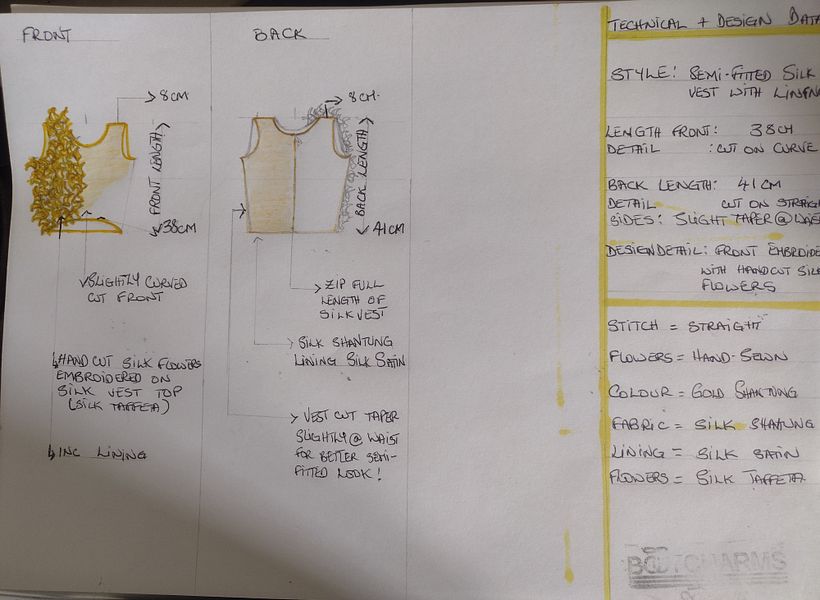 FRONT
8CM
FRONT LENGTH
38CM
SLIGHTLY CURVED
CUT FRONT
HAND CUT SILK FLOWERS
EMBROIDERED ON
SILK VEST TOP
(SILK TAFFETA)
INC LINING
BACK
8CM.
BACK LENGTH
41CM
ZIP FULL
LENGTH OF
SILK VEST
SILK SHANTUNG
LINING SILK SATIN
VEST CUT TAPER
SLIGHTLY @ WAIST
FOR BETTER SEMI-
FITTED LOOK!
TECHNICAL + DESIGN DATA
STYLE: SEMI-FITTED SILK
VEST WITH LINING
LENGTH FRONT: 38CM
DETAIL : CUT ON CURVE
BACK LENGTH: 41CM
DETAIL CUT ON STRAIGH
SIDES: SLIGHT TAPER @ WAIS
DESIGN DETAIL: FRONT EMBROIDE
WITH HANDCUT SILK
FLOWERS
STITCH = STRAIGHT
FLOWERS = HAND-SEWN
COLOUR = GOLD SHANTUNG
FABRIC = SILK SHANTUNG
LINING = SILK SATIN
FLOWERS = SILK TAFFETA